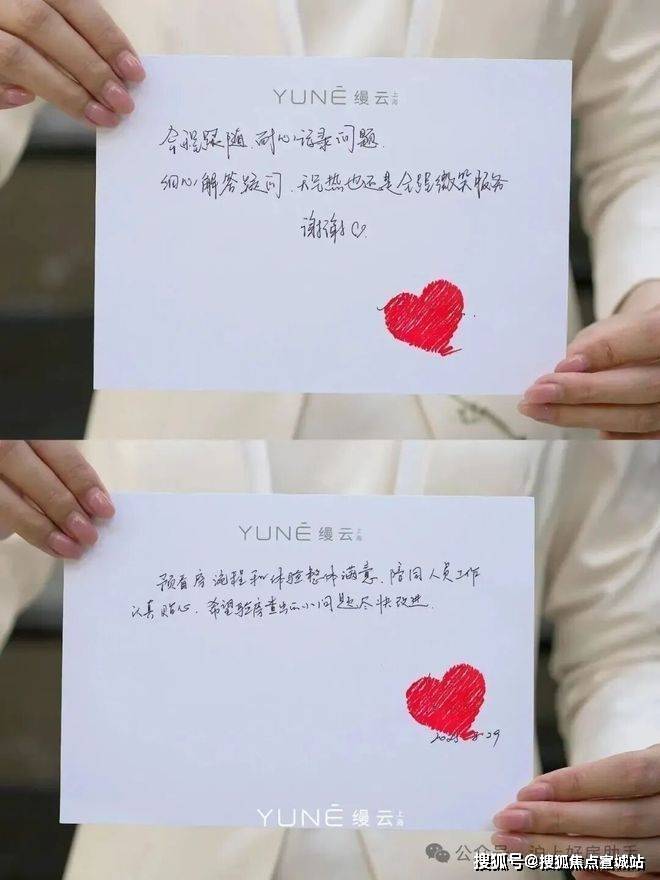 YUNĒ 缦云 上海
全程跟随、耐心记录问题、
细心解答疑问、天气热也还是全程微笑服务
谢谢♡.
YUNĒ 缦云 上海
预看房流程和体验整体满意、陪同人员工作
认真贴心、希望验房查出的小问题尽快改进.
YUNĒ 缦云 上海
公众号 沪上好房助手
搜狐号@搜狐焦点宣城站